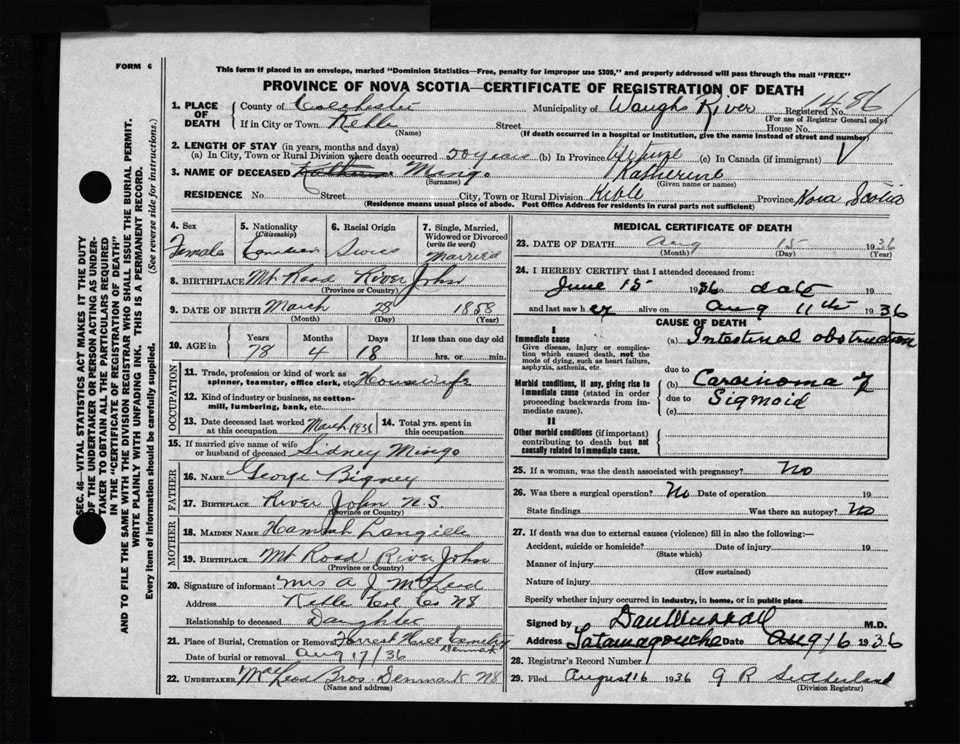 FORM 6
This form if placed in an envelope, marked "Dominion Statistics—Free, penalty for improper use $300," and properly addressed will pass through the mail "FREE"
PROVINCE OF NOVA SCOTIA—CERTIFICATE OF REGISTRATION OF DEATH
1. PLACE OF DEATH County of Colchester Municipality of Waughs River Registered No. 1486
(For use of Registrar General only)
If in City or Town Kelb Street House No.
(Name) (If death occurred in a hospital or institution, give the name instead of street and number)
2. LENGTH OF STAY (in years, months and days)
(a) In City, Town or Rural Division where death occurred 50 years (b) In Province (c) In Canada (if immigrant)
3. NAME OF DECEASED Mingo Katherine
(Surname) (Given name or names)
RESIDENCE No. Street City, Town or Rural Division Province Nova Scotia
(Residence means usual place of abode. Post Office Address for residents in rural parts not sufficient)
4. Sex Female
5. Nationality (Citizenship) Canadian
6. Racial Origin Swiss
7. Single, Married, Widowed or Divorced (write the word) Married
8. BIRTHPLACE Mt Road River John
(Province or Country)
9. DATE OF BIRTH March 28 1858
(Month) (Day) (Year)
10. AGE in Years 78 Months 4 Days 18 If less than one day old hrs. or min.
OCCUPATION
11. Trade, profession or kind of work as spinner, teamster, office clerk, etc. Housewife
12. Kind of industry or business, as cotton-mill, lumbering, bank, etc.
13. Date deceased last worked at this occupation March 1936 14. Total yrs. spent in this occupation
15. If married give name of wife or husband of deceased Sidney Mingo
FATHER
16. NAME George Bigney
17. BIRTHPLACE River John N.S.
(Province or Country)
MOTHER
18. MAIDEN NAME Hannah Langille
19. BIRTHPLACE Mt Road River John
(Province or Country)
20. Signature of informant Mrs A J McLeod
Address Col Co NS
Relationship to deceased Daughter
21. Place of Burial, Cremation or Removal Forrest Hill Cemetery Denmark
Date of burial or removal Aug 17/36
22. UNDERTAKER MacLeod Bros. Denmark NS
(Name and address)
MEDICAL CERTIFICATE OF DEATH
23. DATE OF DEATH Aug 15 1936
(Month) (Day) (Year)
24. I HEREBY CERTIFY that I attended deceased from:
June 15 1936 to date 19
and last saw h er alive on Aug 11th 1936
CAUSE OF DEATH
I
Immediate cause (a) Intestinal obstruction
Give disease, injury or complication which caused death, not the mode of dying, such as heart failure, asphyxia, asthenia, etc.
due to
Morbid conditions, if any, giving rise to immediate cause (stated in order proceeding backwards from immediate cause). (b) Carcinoma of
due to Sigmoid
(c)
II
Other morbid conditions (if important) contributing to death but not causally related to immediate cause.
25. If a woman, was the death associated with pregnancy? No
26. Was there a surgical operation? No Date of operation 19
State findings Was there an autopsy? No
27. If death was due to external causes (violence) fill in also the following:—
Accident, suicide or homicide? Date of injury 19
(State which)
Manner of injury
(How sustained)
Nature of injury
Specify whether injury occurred in industry, in home, or in public place
Signed by Dan Murray M.D.
Address Tatamagouche Date Aug 16 1936
28. Registrar's Record Number
29. Filed August 16 1936 G R Sutherland
(Division Registrar)
SEC. 46—VITAL STATISTICS ACT MAKES IT THE DUTY
OF THE UNDERTAKER OR PERSON ACTING AS UNDER-
TAKER TO OBTAIN ALL THE PARTICULARS REQUIRED
IN THE "CERTIFICATE OF REGISTRATION OF DEATH"
AND TO FILE THE SAME WITH THE DIVISION REGISTRAR WHO SHALL ISSUE THE BURIAL PERMIT.
WRITE PLAINLY WITH UNFADING INK. THIS IS A PERMANENT RECORD.
Every item of information should be carefully supplied. (See reverse side for instructions.)